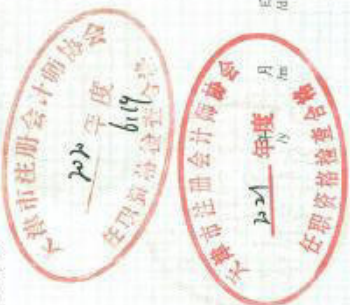 天津市注册会计师协会
2020 年度
6119
任职资格检查合格
天津市注册会计师协会
2021 年度
任职资格检查合格
年 月 日
/y /m /d